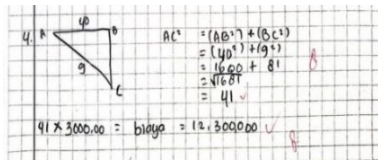 40
4. A B AC² = (AB²) + (BC²)
= (40²) + (9²)
9 = 1600 + 81 8
= √1681
C = 41 ✓
41 × 3000.00 = biaya = 12.300.000 ✓
8